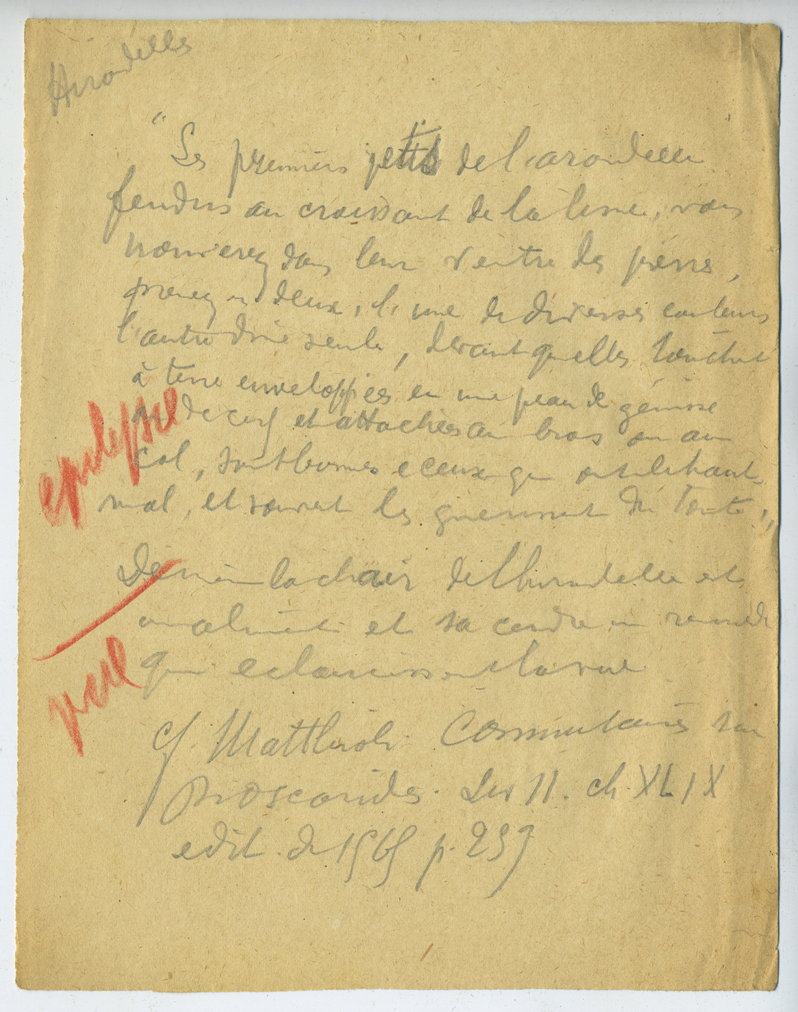 Hirondelles
"Les premiers petits de l'arondelle
fendus au croissant de la lune, vous
trouverez dans leur ventre des pierres,
prenez en deux, l'une de diverses couleurs
l'autre d'une seule, devant quelles touchent
à terre enveloppées en une peau de génisse
ou de cerf et attachées au bras ou au
col, sont bonnes a ceux qui ont le haut
mal, et souvent les guerissent du tout",
epilepsie
De même la chair de l'hirondelle est
un aliment et sa cendre un remede
qui eclaircissent la vue
vue
cf. Matthioli. Commentaires sur
Dioscorides. Liv II. ch. XLIX
edit. de 1565 p.